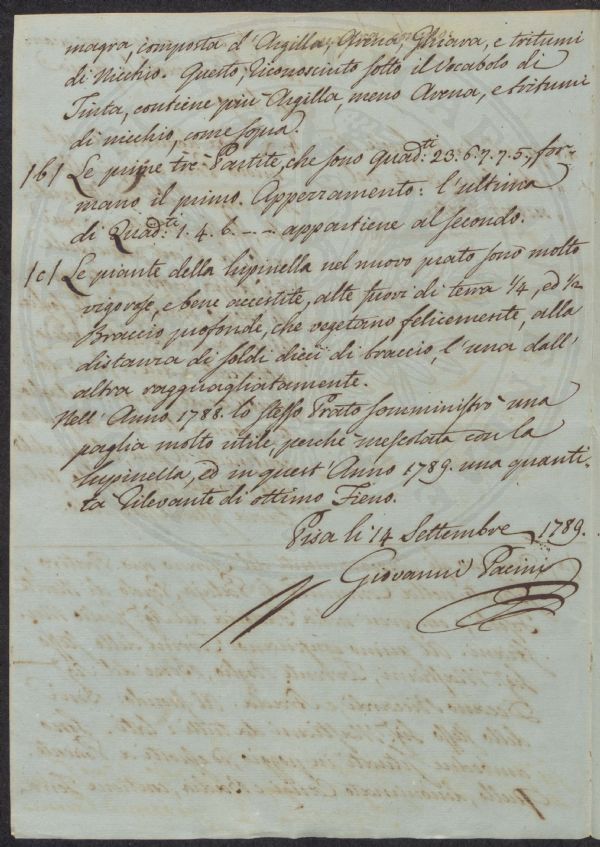 magra, composta d'Argilla, Arena, Ghiara, e tritumi
di Nicchio. Questo, riconosciuto sotto il Vocabolo di
Tinta, contiene più Argilla, meno Arena, e tritumi
di nicchio, come sopra.
/b/ Le prime tre Partite, che sono Quad:ti 23. 6. 7. 7. 5, for-
mano il primo. Apperramento: l'ultima
di Quad:ti 1. 4. 6. -- appartiene al secondo.
/c/ Le piante della lupinella nel nuovo prato sono molto
vigorose, e bene accestite, alte fuori di terra 1/4, ed 1/2
Braccio profonde, che vegetano felicemente, alla
distanza di soldi dieci di braccio, l'una dall'
altra ragguagliatamente.
Nell'Anno 1788. lo stesso Prato somministrò una
paglia molto utile, perchè mescolata con la
lupinella, ed in quest'Anno 1789. una quanti-
tà rilevante di ottimo Fieno.
Pisa li 14 Settembre 1789.
Giovanni Pacini